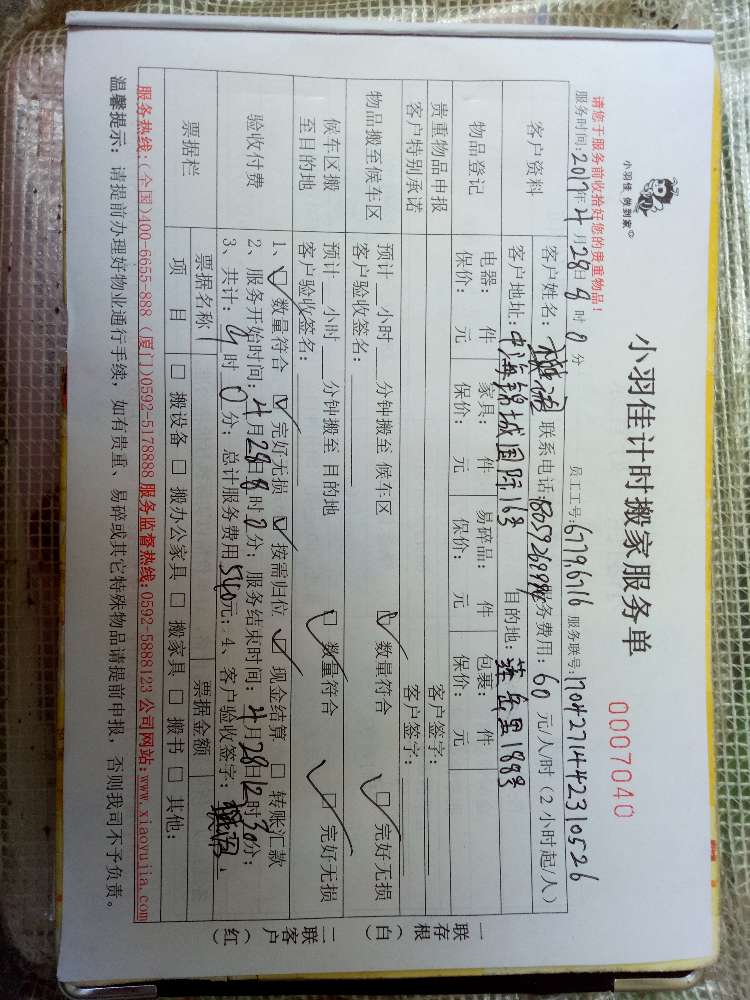 小羽佳 做到家
小羽佳计时搬家服务单
0007040
请您于服务前收拾好您的贵重物品！
服务时间：2017年4月28日8时0分 员工工号：6779.6716 服务联号：1704271442310526
客户资料
客户姓名： 联系电话： 服务费用：60元/人/时（2小时起/人）
客户地址：中海锦城国际163 目的地：莲岳里188号
物品登记
电器： 件 家具： 件 易碎品： 件 包裹： 件
保价： 元 保价： 元 保价： 元 保价： 元
贵重物品申报 客户签字：
客户特别承诺 客户签字：
物品搬至候车区
预计__小时__分钟搬至 候车区 ☑ 数量符合 ☑ 完好无损
客户验收签名：
候车区搬至目的地
预计__小时__分钟搬至 目的地 ☑ 数量符合 ☑ 完好无损
客户验收签名：
验收付费
1、☑ 数量符合 ☑ 完好无损 ☑ 按需归位 ☑ 现金结算 □ 转账汇款
2、服务开始时间：4月28日8时0分；服务结束时间：4月28日12时30分；
3、共计：4时0分；总计服务费用540元；4、客户验收签字：
票据栏
票据名称 票据金额
项 目 □ 搬设备 □ 搬办公家具 □ 搬家具 □ 搬书 □ 其他：
服务热线：(全国)400-6655-888 (厦门)0592-5178888 服务监督热线：0592-5888123 公司网站：www.xiaoyujia.com
温馨提示：请提前办理好物业通行手续，如有贵重、易碎或其它特殊物品请提前申报，否则我司不予负责。
一联存根（白）
二联客户（红）